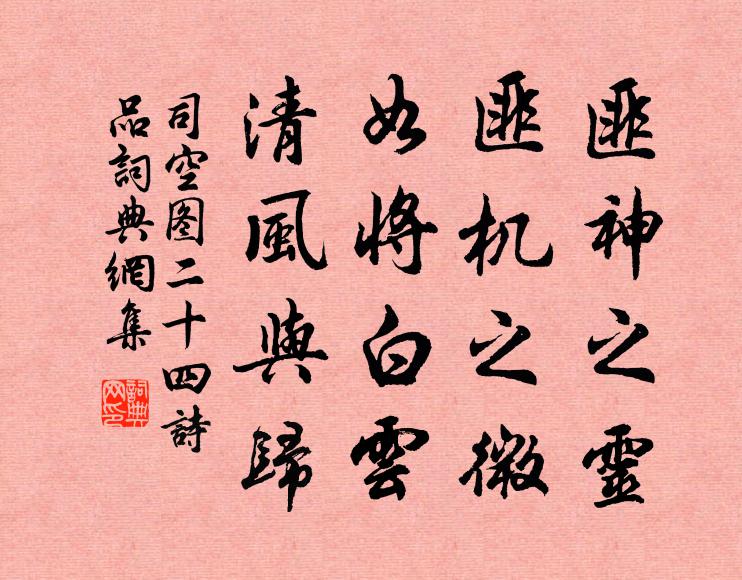 匪神之靈
匪机之微
如將白雲
清風與歸
司空图二十四詩
品詞典網集
詞典网印